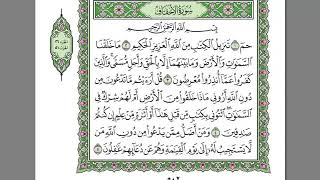 سُورَةُ الْأَحْقَافِ
بِسْمِ اللَّهِ الرَّحْمَٰنِ الرَّحِيمِ
حمٓ ۝ تَنزِيلُ الْكِتَٰبِ مِنَ اللَّهِ الْعَزِيزِ الْحَكِيمِ ۝ مَا خَلَقْنَا
السَّمَٰوَٰتِ وَالْأَرْضَ وَمَا بَيْنَهُمَا إِلَّا بِالْحَقِّ وَأَجَلٍ مُّسَمًّى وَالَّذِينَ
كَفَرُوا عَمَّا أُنذِرُوا مُعْرِضُونَ ۝ قُلْ أَرَءَيْتُم مَّا تَدْعُونَ مِن
دُونِ اللَّهِ أَرُونِي مَاذَا خَلَقُوا مِنَ الْأَرْضِ أَمْ لَهُمْ شِرْكٌ فِي
السَّمَٰوَٰتِ ائْتُونِي بِكِتَٰبٍ مِّن قَبْلِ هَٰذَا أَوْ أَثَٰرَةٍ مِّنْ عِلْمٍ إِن كُنتُمْ
صَٰدِقِينَ ۝ وَمَنْ أَضَلُّ مِمَّن يَدْعُوا مِن دُونِ اللَّهِ مَن
لَّا يَسْتَجِيبُ لَهُ إِلَىٰ يَوْمِ الْقِيَٰمَةِ وَهُمْ عَن دُعَائِهِمْ غَٰفِلُونَ ۝
٥٠٢